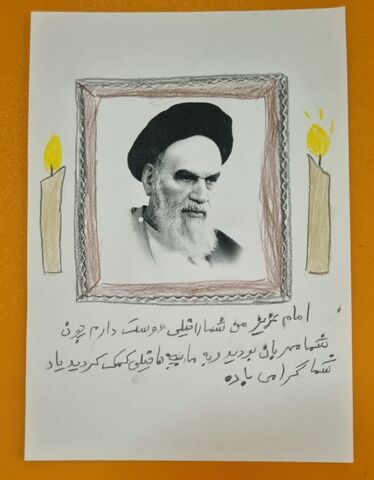 امام عزیز من شمارا خیلی دوست دارم چون
شما مهربان بودید و به ما بچه ها خیلی کمک کردید یاد
شما گرامی باده